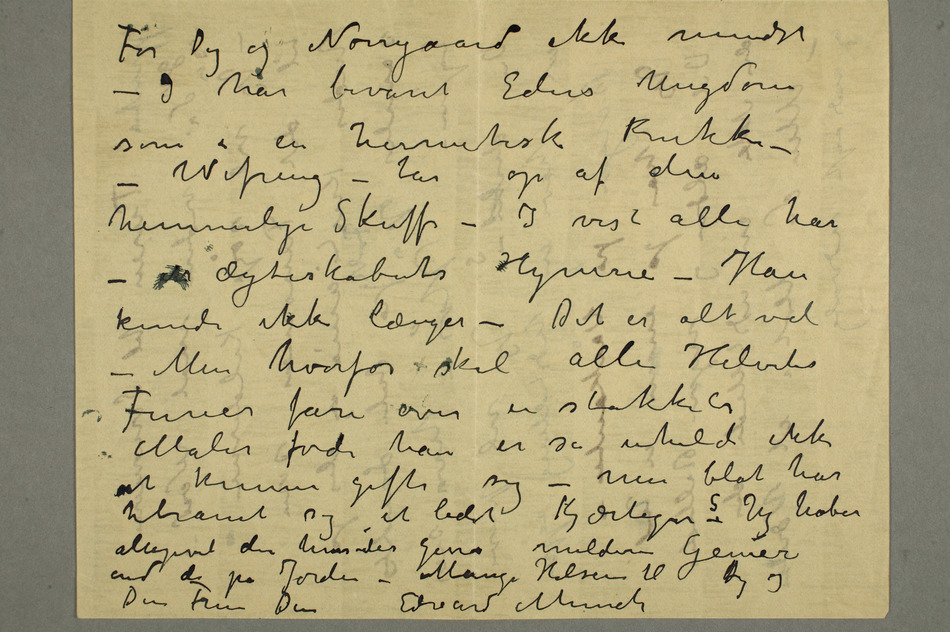 For Dig og Nørregaard ikke mindst
– I har bevaret Eders Ungdom
som i en hermetisk Krukke –
– har op af den
hemmelige Skuffe – I vist alle har
– Ægteskabets Hymne – Han
kunde ikke længer – Det er alt vel
– Men hvorfor skal alle Helvedes
Furier fare over en stakkels
Maler fordi han er så uheld ikke
at kunne gifte sig – men blot har
sig et lidet Kjærlighed Jeg håber
alligevel der hinsides gives mildere Genier
end de på Jorden – Mange Hilsener til Dig og
Din Frue Din Edvard Munch